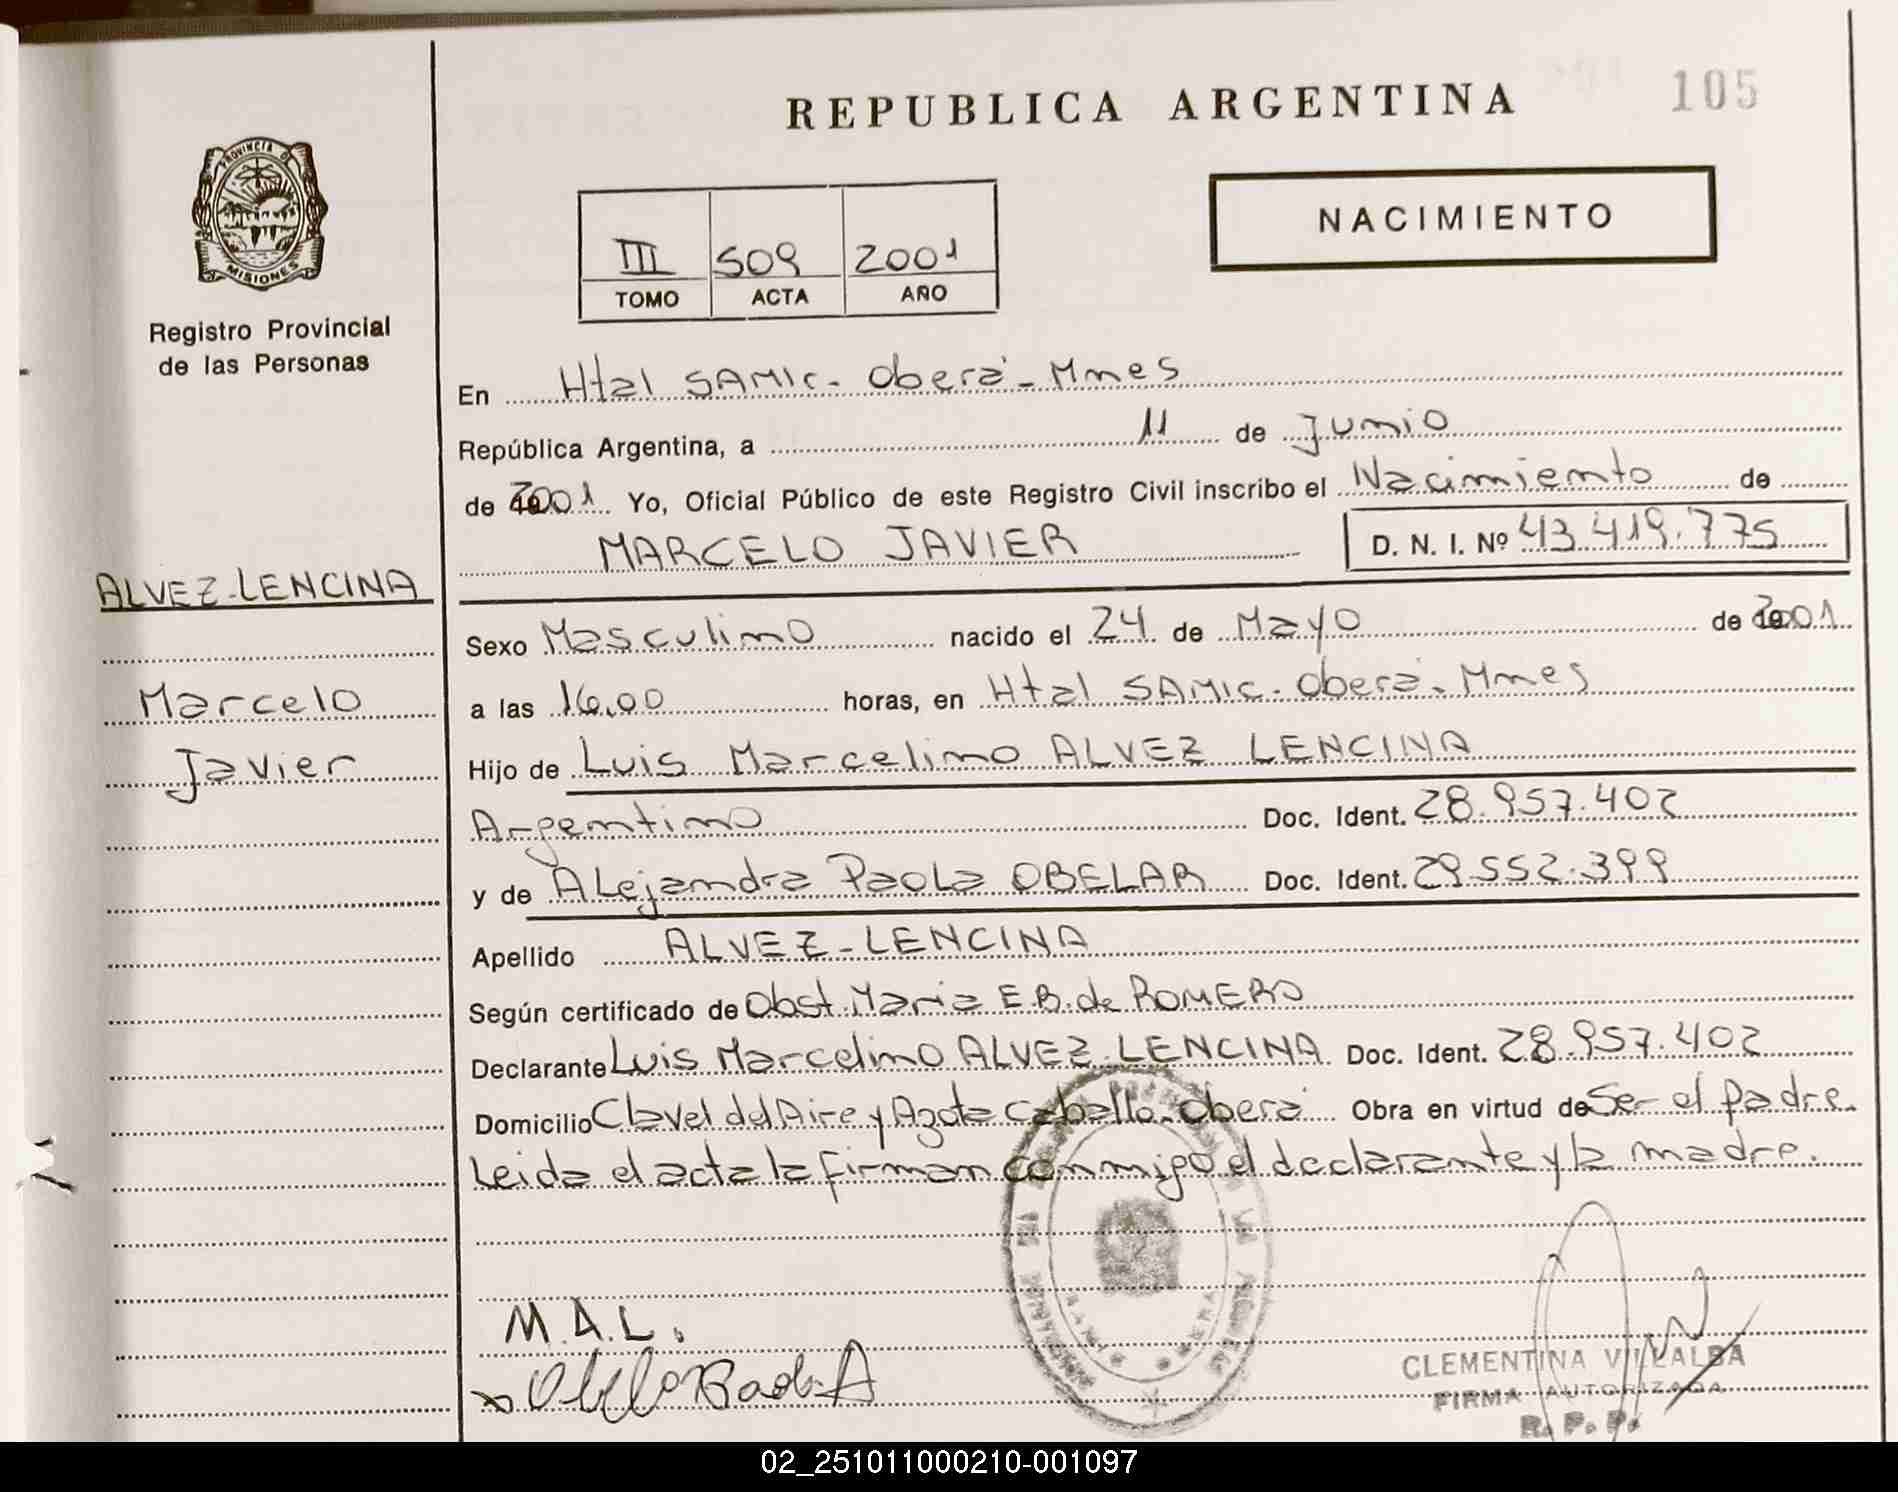 REPUBLICA ARGENTINA
105
PROVINCIA DE
MISIONES
Registro Provincial
de las Personas
III 509 2001
TOMO ACTA AÑO
NACIMIENTO
En Htal SAMIC - Oberá - Mnes
República Argentina, a 11 de Junio
de 2001 Yo, Oficial Público de este Registro Civil inscribo el Nacimiento de
MARCELO JAVIER D. N. I. Nº 43.419.775
ALVEZ-LENCINA
Marcelo
Javier
Sexo Masculino nacido el 24 de Mayo de 2001
a las 16,00 horas, en Htal SAMIC - Oberá - Mnes
Hijo de Luis Marcelino ALVEZ LENCINA
Argentino Doc. Ident. 28.957.402
y de ALejandra PaoLa OBELAR Doc. Ident. 29.552.399
Apellido ALVEZ-LENCINA
Según certificado de Obst. Maria E.B. de ROMERO
Declarante Luis Marcelino ALVEZ-LENCINA Doc. Ident. 28.957.402
Domicilio Clavel del Aire y Azota Caballo - Oberá Obra en virtud de Ser el padre.
Leida el acta la firman conmigo el declarante y la madre.
M.A.L.
CLEMENTINA VILLALBA
FIRMA AUTORIZADA
R. P. P.
02_251011000210-001097